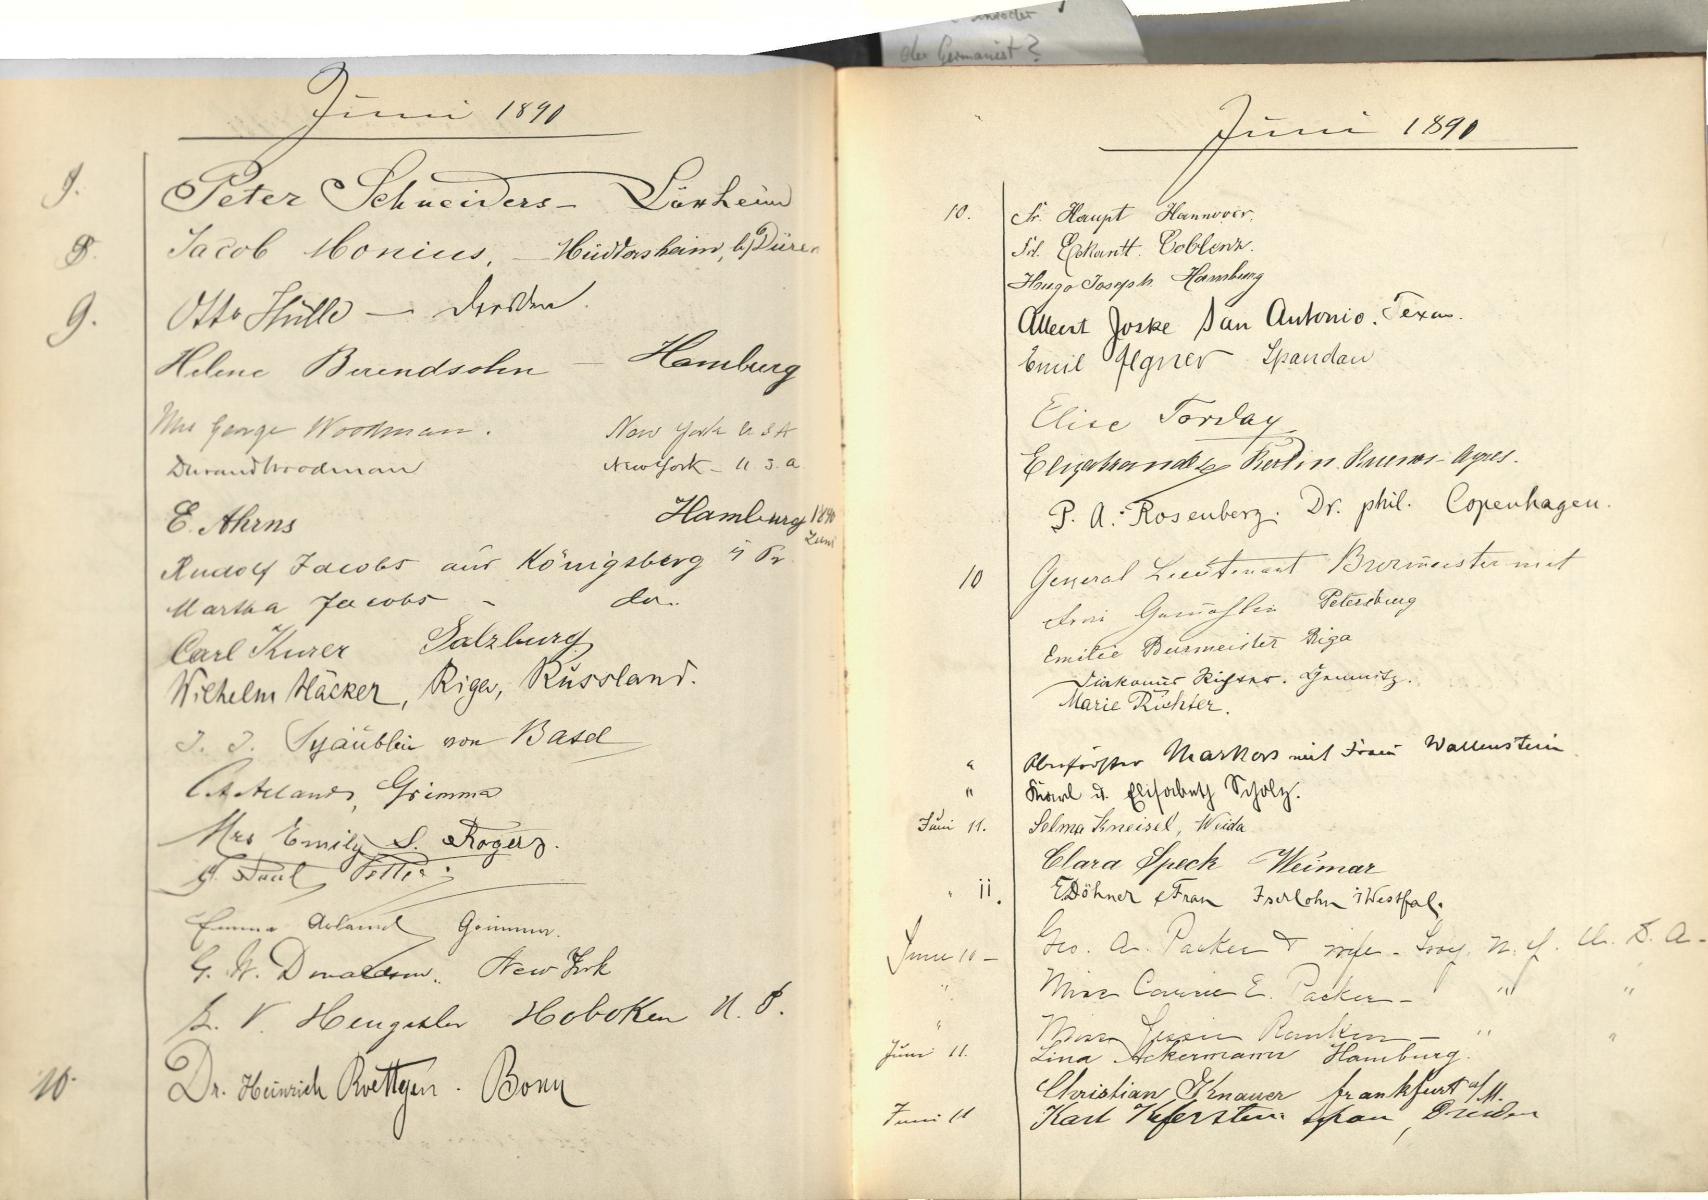 der Germanist?
Juni 1890
9. Peter Schneiders – Lörrheim
Jacob Monius, – b/Düren
9. Otto Hülle – Dresden.
Helene Berendsohn – Hamburg
Mrs George Woodman. New York U S A
Durand Woodman New York – U. S. A
E. Ahrns Hamburg 1890 Juni
Rudolf Jacobs aus Königsberg i/ Pr.
Martha Jacobs – do.
Carl Kurer Salzburg
Wilhelm Häcker, Riga, Russland.
J. J. Schäublin von Basel
Grimma
Mrs Emily S. Rogers.
Paul
Emma Acland Grimma.
G. W. Donaldson. New York
V. Hengstler Hoboken N. J.
10. Dr. Heinrich Roettgen. Bonn
Juni 1890
10. Fr. Haupt Hannover.
Frl. Eckardt. Coblenz.
Hugo Joseph Hamburg
Albert Joske San Antonio. Texas.
Emil Ilgner Spandau
Elise Torday
Berlin. Buenos-Ayres.
P. A. Rosenberg. Dr. phil. Copenhagen.
10 General Lieutenant Burmeister mit
Gemahlin Petersburg
Emilie Burmeister Riga
Diakonus Richter.
Marie Richter.
" Oberförster mit Frau Wallenstein
" Karl u. Elisabeth Scholz.
Juni 11. Selma Kneisel, Weida
Clara Speck Weimar
" 11. E. Döhner & Frau Iserlohn i/Westfal.
June 10 – Geo. A. Packer & wife – Troy. N. Y. U. S. A –
" Miss Carrie E. Packer – " "
" Miss Jessie Rankin – " "
Juni 11. Lina Ackermann Hamburg.
Christian Knauer Frankfurt a/M.
Juni 11 Karl Dresden